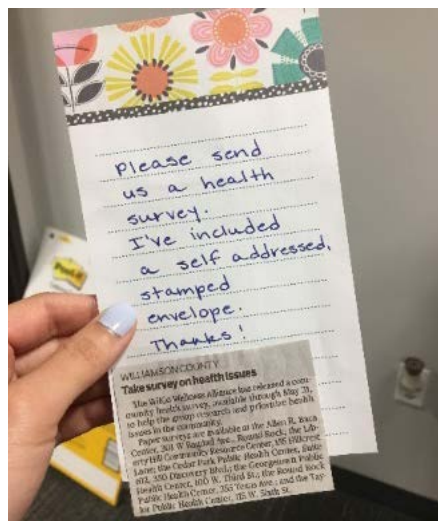 please send
us a health
survey.
I've included
a self addressed,
stamped
envelope.
Thanks!
Post-it
WILLIAMSON COUNTY
Take survey on health issues
The WilCo Wellness Alliance has released a com-
munity health survey, available through May 31,
to help the group research and prioritize health
issues in the community.
Paper surveys are available at the Allen R. Baca
Center, 301 W. Bagdad Ave., Round Rock; the Lib-
erty Hill Community Resource Center, 155 Hillcrest
Lane; the Cedar Park Public Health Center, Suite
350 Discovery Blvd.; the Georgetown Public
Health Center, 100 W. Third St.; the Round Rock
Public Health Center, 355 Texas Ave.; and the Tay-
lor Public Health Center, 115 W. Sixth St.